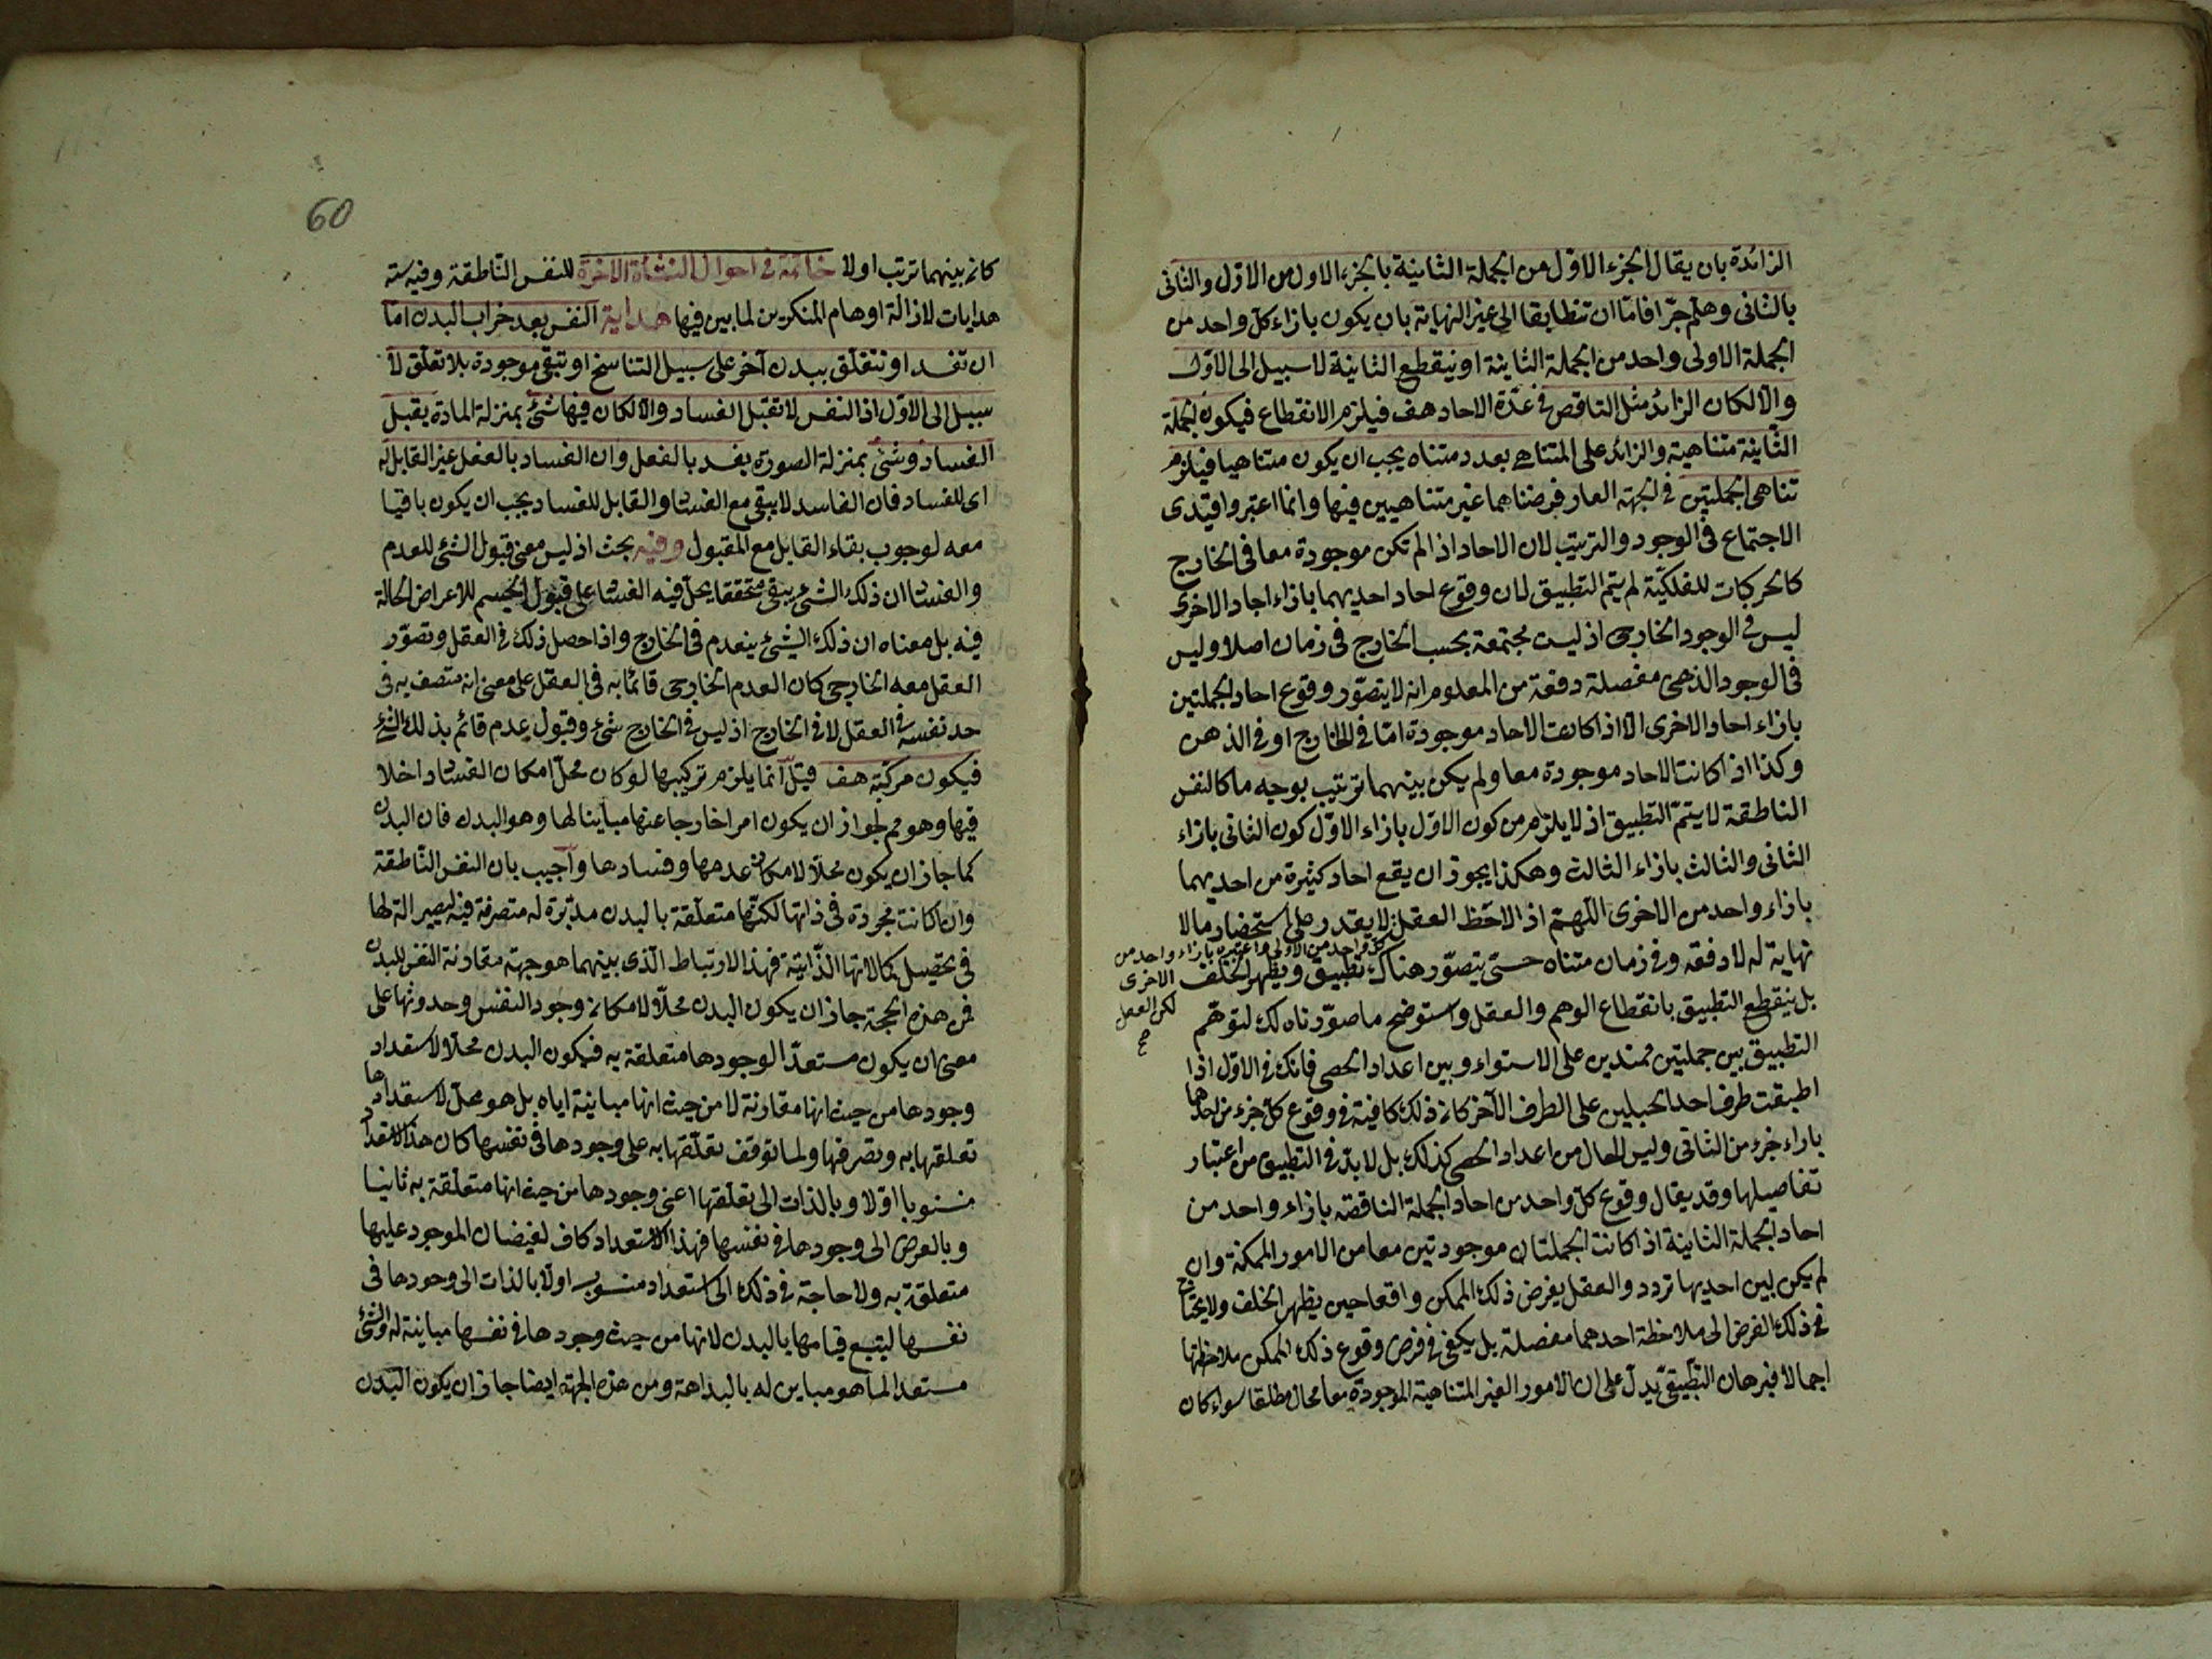 الزائدة بان يقال الجزء الاول من الجملة الثانية بالجزء الاول من الاول والثانى
بالثانى وهلم جرا فاما ان تتطابقا الى غير النهاية بان يكون بازاء كل واحد من
الجملة الاولى واحد من الجملة الثانية او ينقطع الثانية لا سبيل الى الاول
والا لكان الزائد مثل الناقص فى عدة الاحاد هف فيلزم الانقطاع فيكون الجملة
الثانية متناهية والزائد على المتناهى بعدد متناه يجب ان يكون متناهيا فيلزم
تناهى الجملتين فى الجهة التى فرضناهما غير متناهيين فيها وانما اعتبروا قيدى
الاجتماع فى الوجود والترتيب لان الاحاد اذا لم تكن موجودة معا فى الخارج
كالحركات الفلكية لم يتم التطبيق لان وقوع احاد احديهما بازاء احاد الاخرى
ليس فى الوجود الخارجى اذ ليست مجتمعة بحسب الخارج فى زمان اصلا وليس
فى الوجود الذهنى مفصلة دفعة من المعلوم انه لا يتصور وقوع احاد الجملتين
بازاء احاد الاخرى الا اذا كانت الاحاد موجودة اما فى الخارج او فى الذهن
وكذا اذا كانت الاحاد موجودة معا ولم يكن بينهما ترتيب بوجه ما كالنفس
الناطقة لا يتم التطبيق اذ لا يلزم من كون الاول بازاء الاول كون الثانى بازاء
الثانى والثالث بازاء الثالث وهكذا يجوز ان يقع احاد كثيرة من احديهما
بازاء واحد من الاخرى اللهم اذا لاحظ العقل لا يقدر على استحضار مالا
كل واحد من الاولى واعتبره بازاء واحد من
الاخرى
لكن العقل
صح
نهاية له لا دفعة وفى زمان متناه حتى يتصور هناك تطبيق ويظهر الخلف
بل ينقطع التطبيق بانقطاع الوهم والعقل واستوضح ما صورناه لك لتوهم
التطبيق بين جملتين ممتدين على الاستواء وبين اعداد الحصى فانك فى الاول اذا
اطبقت طرف احد الحبلين على الطرف الآخر كان ذلك كافية فى وقوع كل جزء من احدهما
بازاء جزء من الثانى وليس الحال من اعداد الحصى كذلك بل لا بد فى التطبيق من اعتبار
تفاصيلها وقد يقال وقوع كل واحد من احاد الجملة الناقصة بازاء واحد من
احاد الجملة الثانية اذا كانت الجملتان موجودتين معا من الامور الممكنة وان
لم يكن بين احديها تردد والعقل يفرض ذلك الممكن واقعا حين يظهر الخلف ولا يحتاج
فى ذلك الفرض الى ملاحظة احدهما مفصلة بل يكفى فى فرض وقوع ذلك الممكن ملاحظتها
اجمالا فبرهان التطبيق يدل على ان الامور الغير المتناهية الموجودة معا محال مطلقا سواء كان
60
كان بينهما ترتب اولا خاتمة فى احوال النشأة الاخرة للنفس الناطقة وفيه ستة
هدايات لازالة اوهام المنكرين لما بين فيها هداية النفس بعد خراب البدن اما
ان تفسد او تتعلق ببدن آخر على سبيل التناسخ او تبقى موجودة بلا تعلق لا
سبيل الى الاول اذ النفس لا تقبل الفساد والا لكان فيها شئ بمنزلة المادة يقبل
الفساد وشئ بمنزلة الصورة يفسد بالفعل وان الفساد بالفعل غير القابل له
اى للفساد فان الفاسد لا يبقى مع الفساد والقابل للفساد يجب ان يكون باقيا
معه لوجوب بقاء القابل مع المقبول وفيه بحث اذ ليس معنى قبول الشئ للعدم
والفساد ان ذلك الشئ يبقى متحققا يحل فيه الفساد على قبول الجسم للاعراض الحالة
فيه بل معناه ان ذلك الشئ ينعدم فى الخارج واذا حصل ذلك فى العقل وتصور
العقل معه الخارجى كان العدم الخارجى قائما به فى العقل على معنى انه متصف به فى
حد نفسه فى العقل لا فى الخارج اذ ليس فى الخارج شئ وقبول عدم قائم بذلك الشئ
فيكون مركبة هف قيل انما يلزم تركيبها لو كان محل امكان الفساد داخلا
فيها وهو مم لجواز ان يكون امرا خارجا عنها مباينا لها وهو البدن فان البدن
كما جاز ان يكون محلا لامكان عدمها وفسادها واجيب بان النفس الناطقة
وان كانت مجردة فى ذاتها لكنها متعلقة بالبدن مدبرة له متصرفة فيه ليصير الة لها
فى تحصيل كمالاتها الذاتية فهذا الارتباط الذى بينهما هو جهة مقارنة النفس للبدن
فمن هذه الحجة جاز ان يكون البدن محلا لامكان وجود النفس وحدوثها على
معنى ان يكون مستعدا لوجودها متعلقة به فيكون البدن محلا لاستعداد
وجودها من حيث انها مقارنة لا من حيث انها مباينة اياه بل هو محل لاستعدادها
تعلقها به وتصرفها ولما توقف تعلقها به على وجودها فى نفسها كان هذا الاستعداد
منسوبا اولا وبالذات الى تعلقها اعنى وجودها من حيث انها متعلقة به ثانيا
وبالعرض الى وجودها فى نفسها فهذا الاستعداد كاف لفيضان الموجود عليها
متعلقة به ولا حاجة فى ذلك الى استعداد منسوب اولا بالذات الى وجودها فى
نفسها ليتبع قيامها بالبدن لانها من حيث وجودها فى نفسها مباينة له والشئ
مستعد الما هو مباين له بالبداهة ومن هذه الجهة ايضا جاز ان يكون البدن